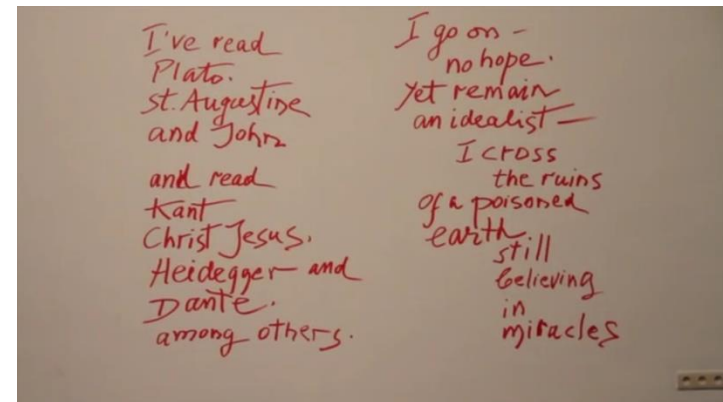 I've read
Plato.
St. Augustine
and John
and read
Kant
Christ Jesus.
Heidegger and
Dante.
among others.
I go on –
no hope.
yet remain
an idealist —
I cross
the ruins
of a poisoned
earth
still
believing
in
miracles